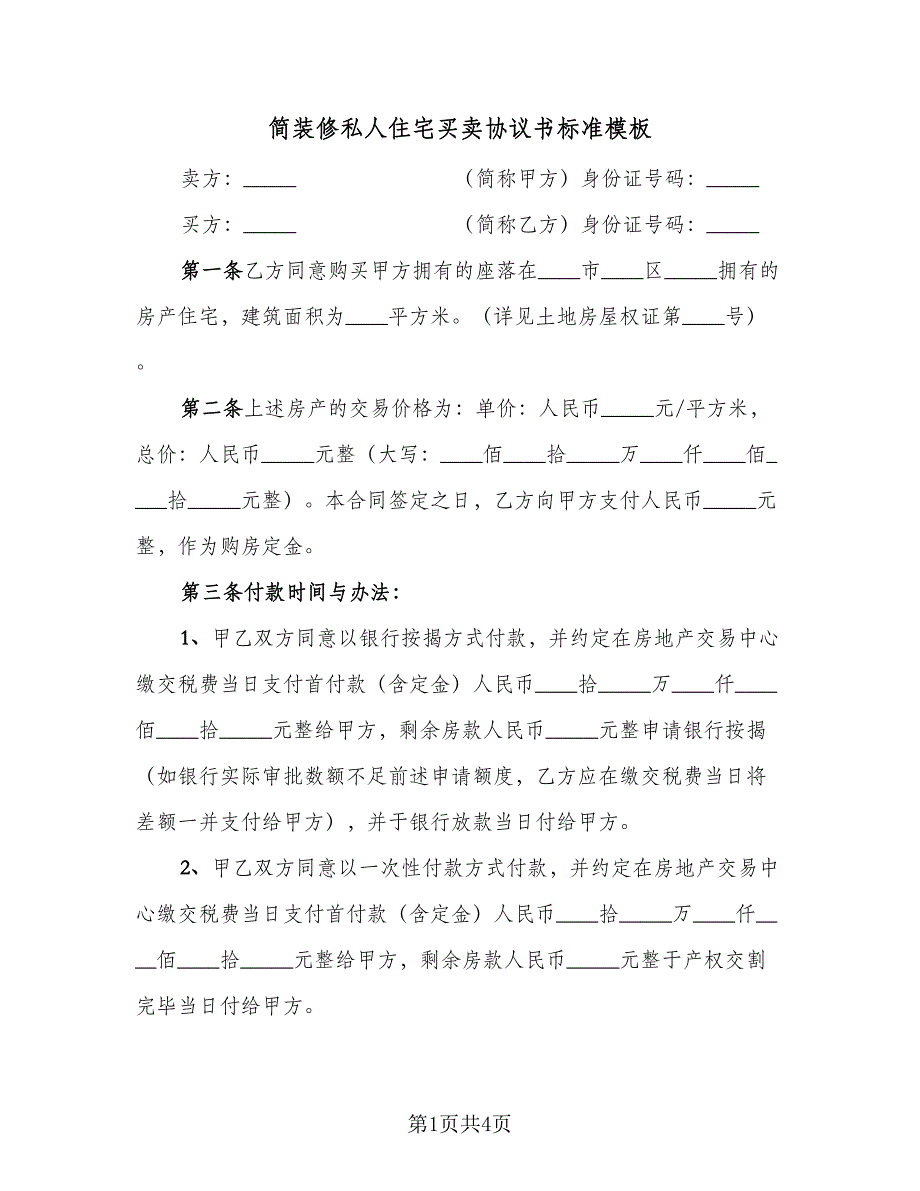 简装修私人住宅买卖协议书标准模板
卖方：_____ （简称甲方）身份证号码：_____
买方：_____ （简称乙方）身份证号码：_____
第一条乙方同意购买甲方拥有的座落在____市____区_____拥有的
房产住宅，建筑面积为____平方米。（详见土地房屋权证第____号）
。
第二条上述房产的交易价格为：单价：人民币_____元/平方米，
总价：人民币_____元整（大写：____佰____拾_____万____仟____佰_
___拾_____元整）。本合同签定之日，乙方向甲方支付人民币_____元
整，作为购房定金。
第三条付款时间与办法：
1、甲乙双方同意以银行按揭方式付款，并约定在房地产交易中心
缴交税费当日支付首付款（含定金）人民币____拾_____万____仟____
佰____拾_____元整给甲方，剩余房款人民币_____元整申请银行按揭
（如银行实际审批数额不足前述申请额度，乙方应在缴交税费当日将
差额一并支付给甲方），并于银行放款当日付给甲方。
2、甲乙双方同意以一次性付款方式付款，并约定在房地产交易中
心缴交税费当日支付首付款（含定金）人民币____拾_____万____仟__
__佰____拾_____元整给甲方，剩余房款人民币_____元整于产权交割
完毕当日付给甲方。
第1页共4页